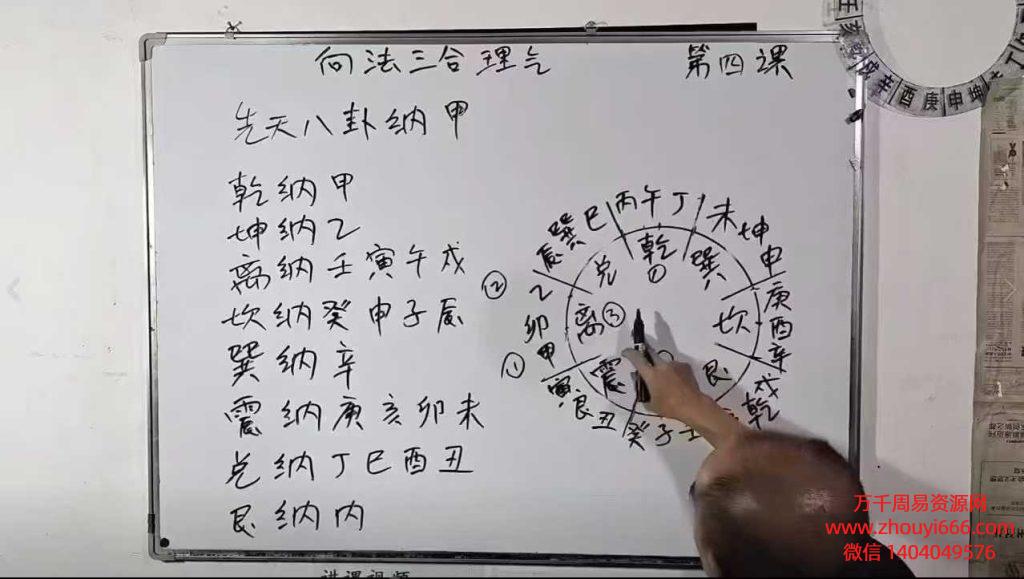 向法三合理气 第四课
先天八卦纳甲
乾纳甲
坤纳乙
离纳壬寅午戌
坎纳癸申子辰
巽纳辛
震纳庚亥卯未
兑纳丁巳酉丑
艮纳内
丙午丁
未坤申
庚酉辛
戌乾
癸子壬
丑艮寅
甲卯乙
辰巽巳
乾 ①
巽
坎
艮
震
离 ③
兑
②
①
辛酉庚申坤
万千周易资源网
www.zhouyi666.com
微信 1404049576
讲课视频